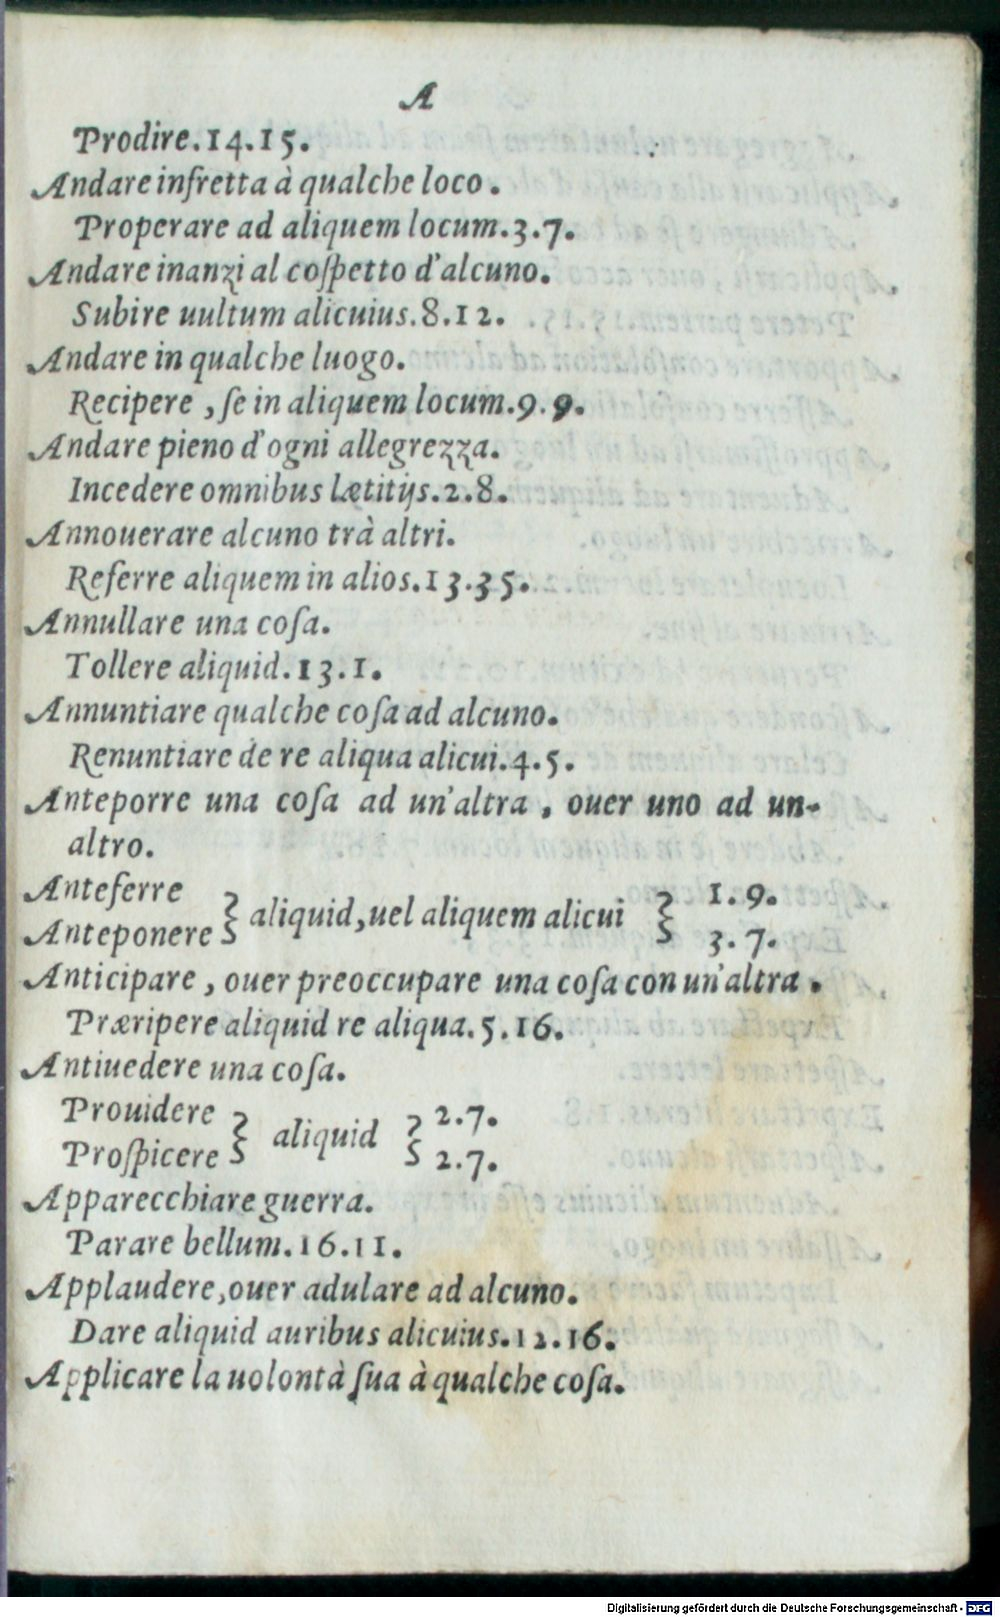 A
Prodire.14.15.
Andare infretta à qualche loco.
Properare ad aliquem locum.3.7.
Andare inanzi al coſpetto d'alcuno.
Subire uultum alicuius.8.12.
Andare in qualche luogo.
Recipere , ſe in aliquem locum.9.9.
Andare pieno d'ogni allegrezza.
Incedere omnibus lætitijs.2.8.
Annouerare alcuno trà altri.
Referre aliquem in alios.13.35.
Annullare una coſa.
Tollere aliquid.13.1.
Annuntiare qualche coſa ad alcuno.
Renuntiare de re aliqua alicui.4.5.
Anteporre una coſa ad un'altra , ouer uno ad un-
altro.
Anteferre } aliquid,uel aliquem alicui } 1.9.
Anteponere 3.7.
Anticipare , ouer preoccupare una coſa con un'altra.
Præripere aliquid re aliqua.5.16.
Antiuedere una coſa.
Prouidere } aliquid } 2.7.
Proſpicere 2.7.
Apparecchiare guerra.
Parare bellum.16.11.
Applaudere,ouer adulare ad alcuno.
Dare aliquid auribus alicuius.12.16.
Applicare la uolontà ſua à qualche coſa.
Digitalisierung gefördert durch die Deutsche Forschungsgemeinschaft - DFG